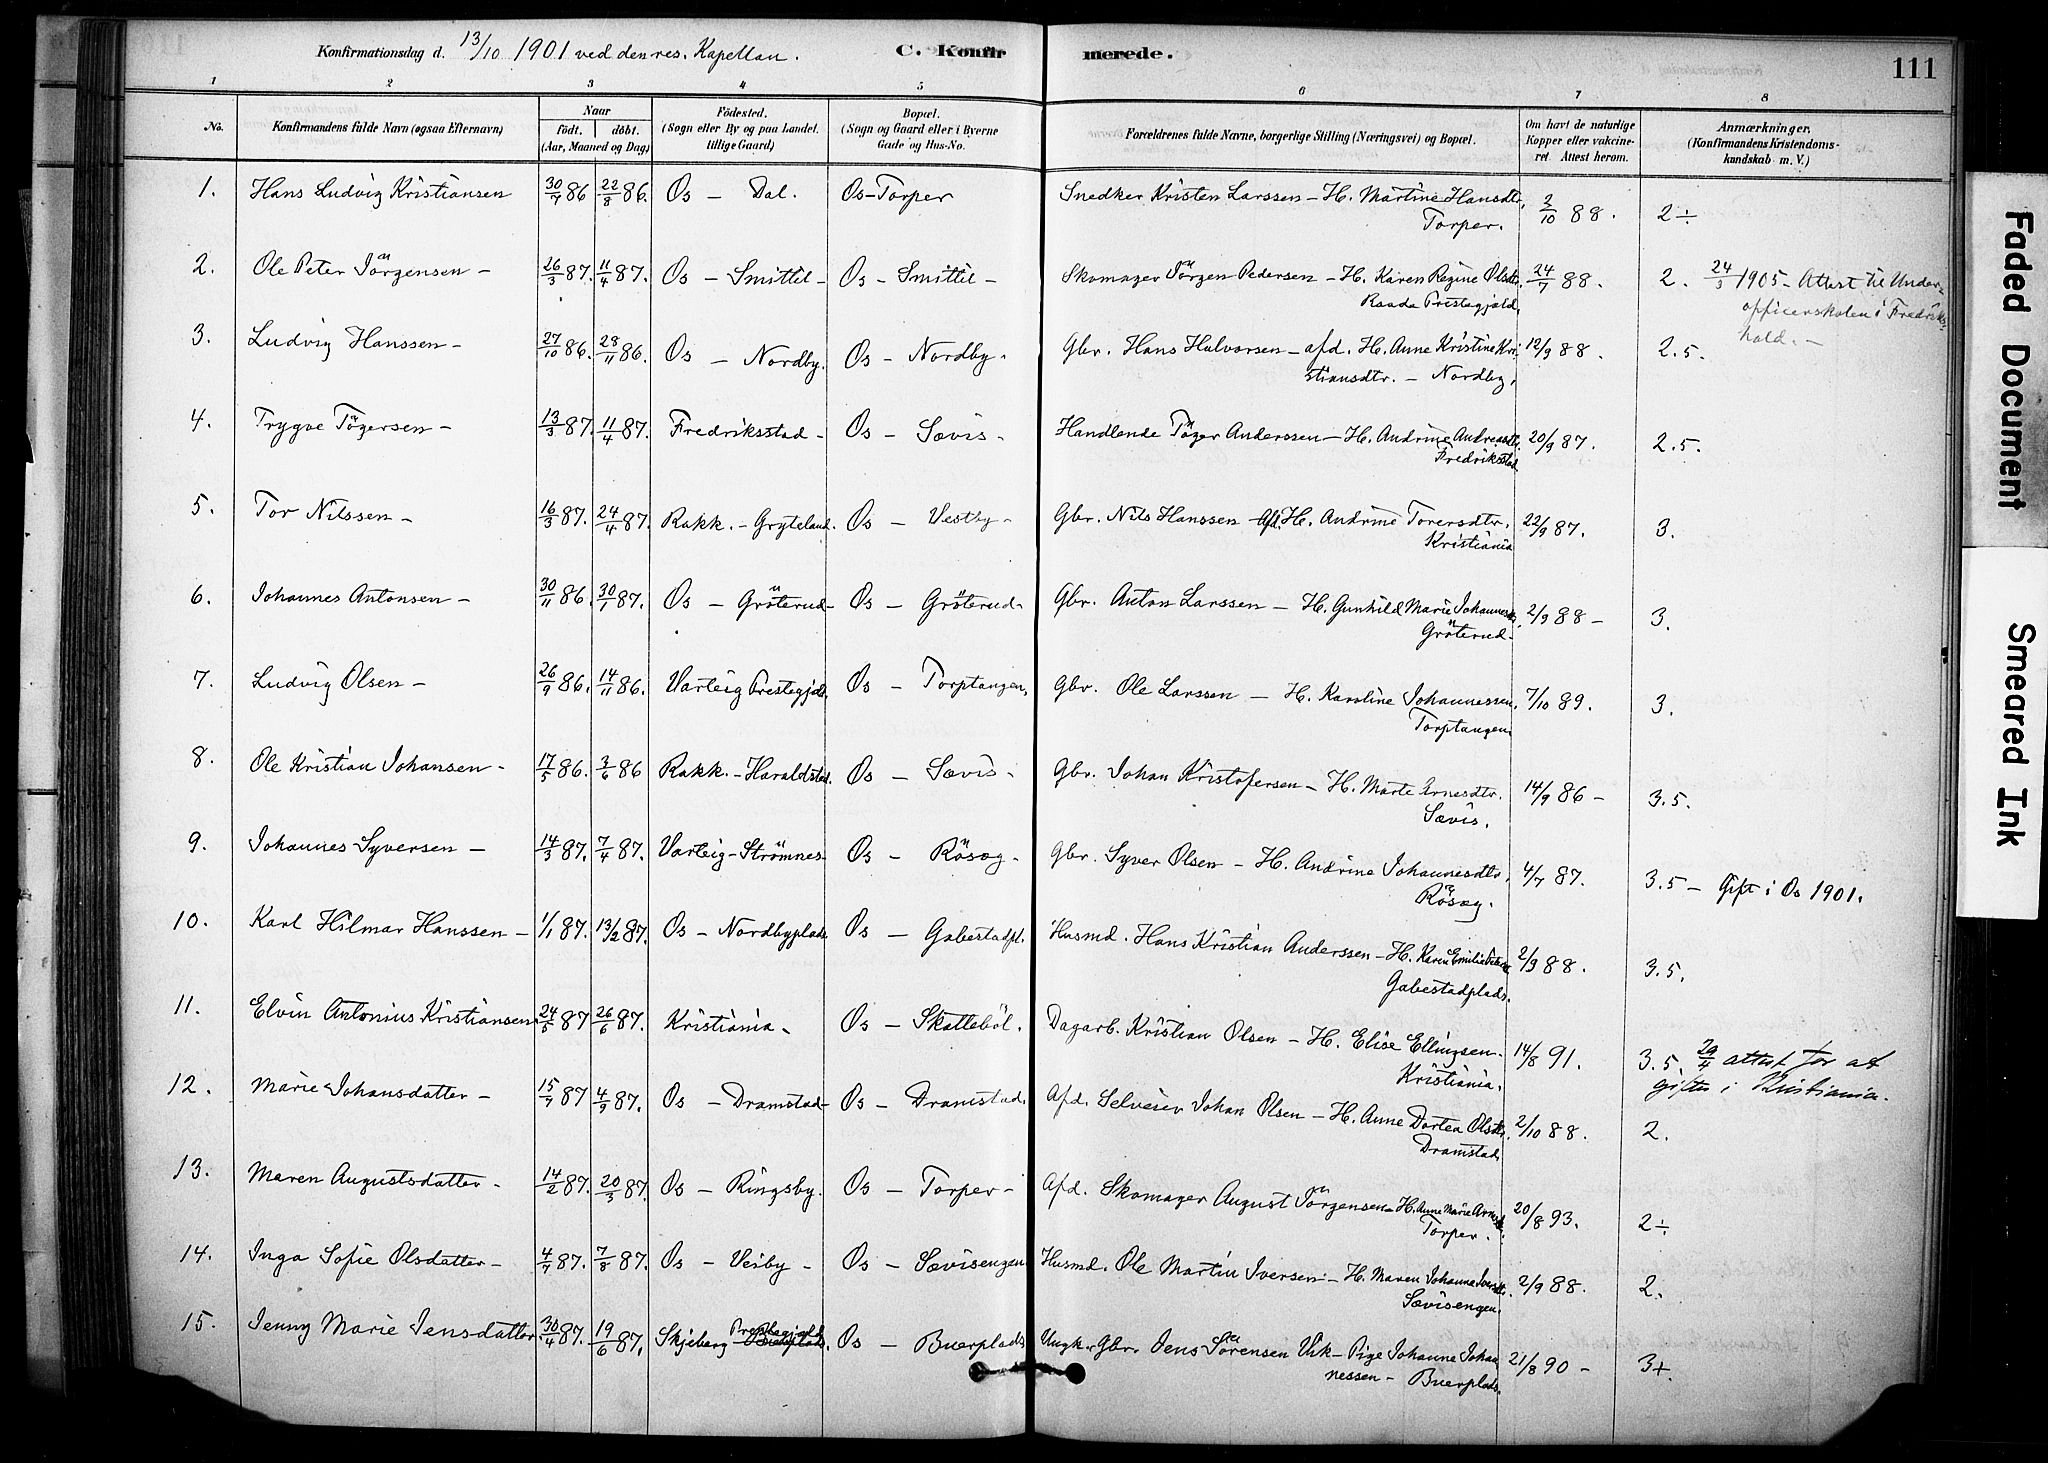 Konfirmationsdag d. 13/10 1901 ved den res. Kapellan. C. Konfirmerede. 111
1 2 3 4 5 6 7 8
No. Konfirmandens fulde Navn (ogsaa Efternavn) Naar födt. döbt. (Aar, Maaned og Dag) Födested. (Sogn eller By og paa Landet tillige Gaard) Bopæl. (Sogn og Gaard eller i Byerne Gade og Hus-No. Forældrenes fulde Navne, borgerlige Stilling (Næringsvei) og Bopæl. Om havt de naturlige Kopper eller vakcineret. Attest herom. Anmærkninger. (Konfirmandens Kristendomskundskab m. V.)
1. Hans Ludvig Kristiansen 30/7 86 22/8 86. Os - Dal. Os - Torper Snedker Kristen Larssen - H. Martine Hansdtr, 3/10 88. 2 ÷
Torper.
2. Ole Peter Jörgensen - 26/3 87. 11/4 87. Os - Smittil - Os - Smittil - Skomager Jörgen Pedersen - H. Karen Regine Olsdtr. 24/7 88. 2. 24/3 1905 - Attest til Under-
Raade Prestegjæld. officerskolen i Fredriks-
hald. -
3. Ludvig Hanssen - 27/10 86. 28/11 86. Os - Nordby. Os - Nordby. Gbr. Hans Halvorsen - afd. H. Anne Kristine Kri- 12/9 88. 2.5.
stiansdtr. - Nordby.
4. Trygve Tögersen - 13/3 87. 11/4 87. Fredriksstad - Os - Sævis - Handlende Töger Anderssen - H. Andrine Andreasdtr. 20/9 87. 2.5.
Fredriksstad
5. Tor Nilssen - 16/3 87. 24/4 87. Rakk. - Gryteland. Os - Vestby - Gbr. Nils Hanssen - Afd. H. Andrine Torersdtr. 22/9 87. 3.
Kristiania
6. Johannes Antonsen - 30/11 86. 30/1 87. Os - Gröterud - Os - Gröterud - Gbr. Anton Larssen - H. Gunhild Marie Johannesdtr. 2/9 88 - 3.
Gröterud -
7. Ludvig Olsen - 26/9 86. 14/11 86. Varteig Prestegjæld. Os - Torptangen. Gbr. Ole Larssen - H. Karoline Johannessen. 7/10 89. 3.
Torptangen.
8. Ole Kristian Johansen - 17/5 86. 3/6 86 Rakk. - Haraldstad. Os - Sævis - Gbr. Johan Kristofersen - H. Marte Arnesdtr. 14/9 86 - 3.5.
Sævis.
9. Johannes Syversen - 14/3 87. 7/4 87. Varteig - Strömnes - Os - Rösæg - Gbr. Syver Olsen - H. Andrine Johannesdtr. 4/7 87. 3.5 - Gift i Os 1901.
Rösæg.
10. Karl Hilmar Hanssen - 1/1 87. 13/2 87. Os - Nordbyplads Os - Gabestadpl. Husmd. Hans Kristian Anderssen - H. Karen Emilie 2/9 88. 3.5.
Gabestadplads.
11. Elvin Antonius Kristiansen 24/5 87 26/6 87. Kristiania - Os - Skatteböl. Dagarb. Kristian Olsen - H. Elise Ellingsen - 14/8 91. 3.5. attest for at
Kristiania. giftes i Kristiania.
12. Marie Johansdatter - 15/7 87 4/9 87. Os - Dramstad - Os - Dramstad. Afd. Selveier Johan Olsen - H. Anne Dortea Olsdtr. 2/10 88. 2.
Dramstad
13. Maren Augustsdatter - 14/2 87. 20/3 87. Os - Ringsby. Os - Torper - Afd. Skomager August Jörgensen - H. Anne Marie Arnesdtr. 20/8 93. 2 ÷
Torper.
14. Inga Sofie Olsdatter - 4/7 87. 7/8 87. Os - Veiby - Os - Sævisengen Husmd. Ole Martin Iversen - H. Maren Johanne Iversdtr. 2/9 88. 2.
Sævisengen.
15. Jenny Marie Jensdatter. 30/4 87. 19/6 87. Skjeberg Prestegjæld. Os - Buerplads Ungk. Gbr. Jens Sörensen Vik - Pige Johanne Johan- 21/8 90 - 3+.
nessen - Buerplads.
Faded Document
Smeared Ink